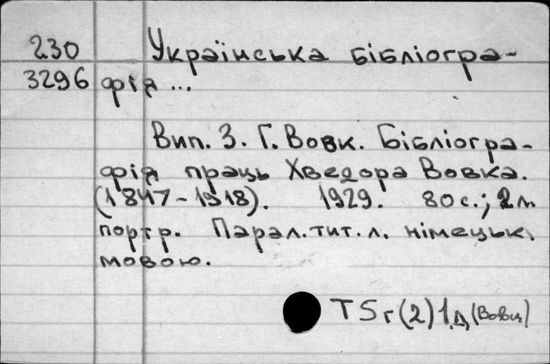 230 Українська бібліогра-
3296 фія ...
Вип. 3. Г. Вовк. Бібліогра-
фія праць Хведора Вовка.
(1847-1918). 1929. 80 с.; 2 л.
портр. Парал. тит. л. німецьк.
мовою.
T5г(2)1д (Вовц)